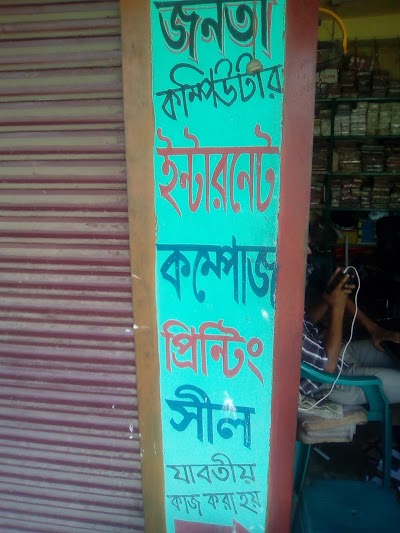 জনতা
কম্পিউটার
ইন্টারনেট
কম্পোজ
প্রিন্টিং
সীল
যাবতীয়
কাজ করা হয়